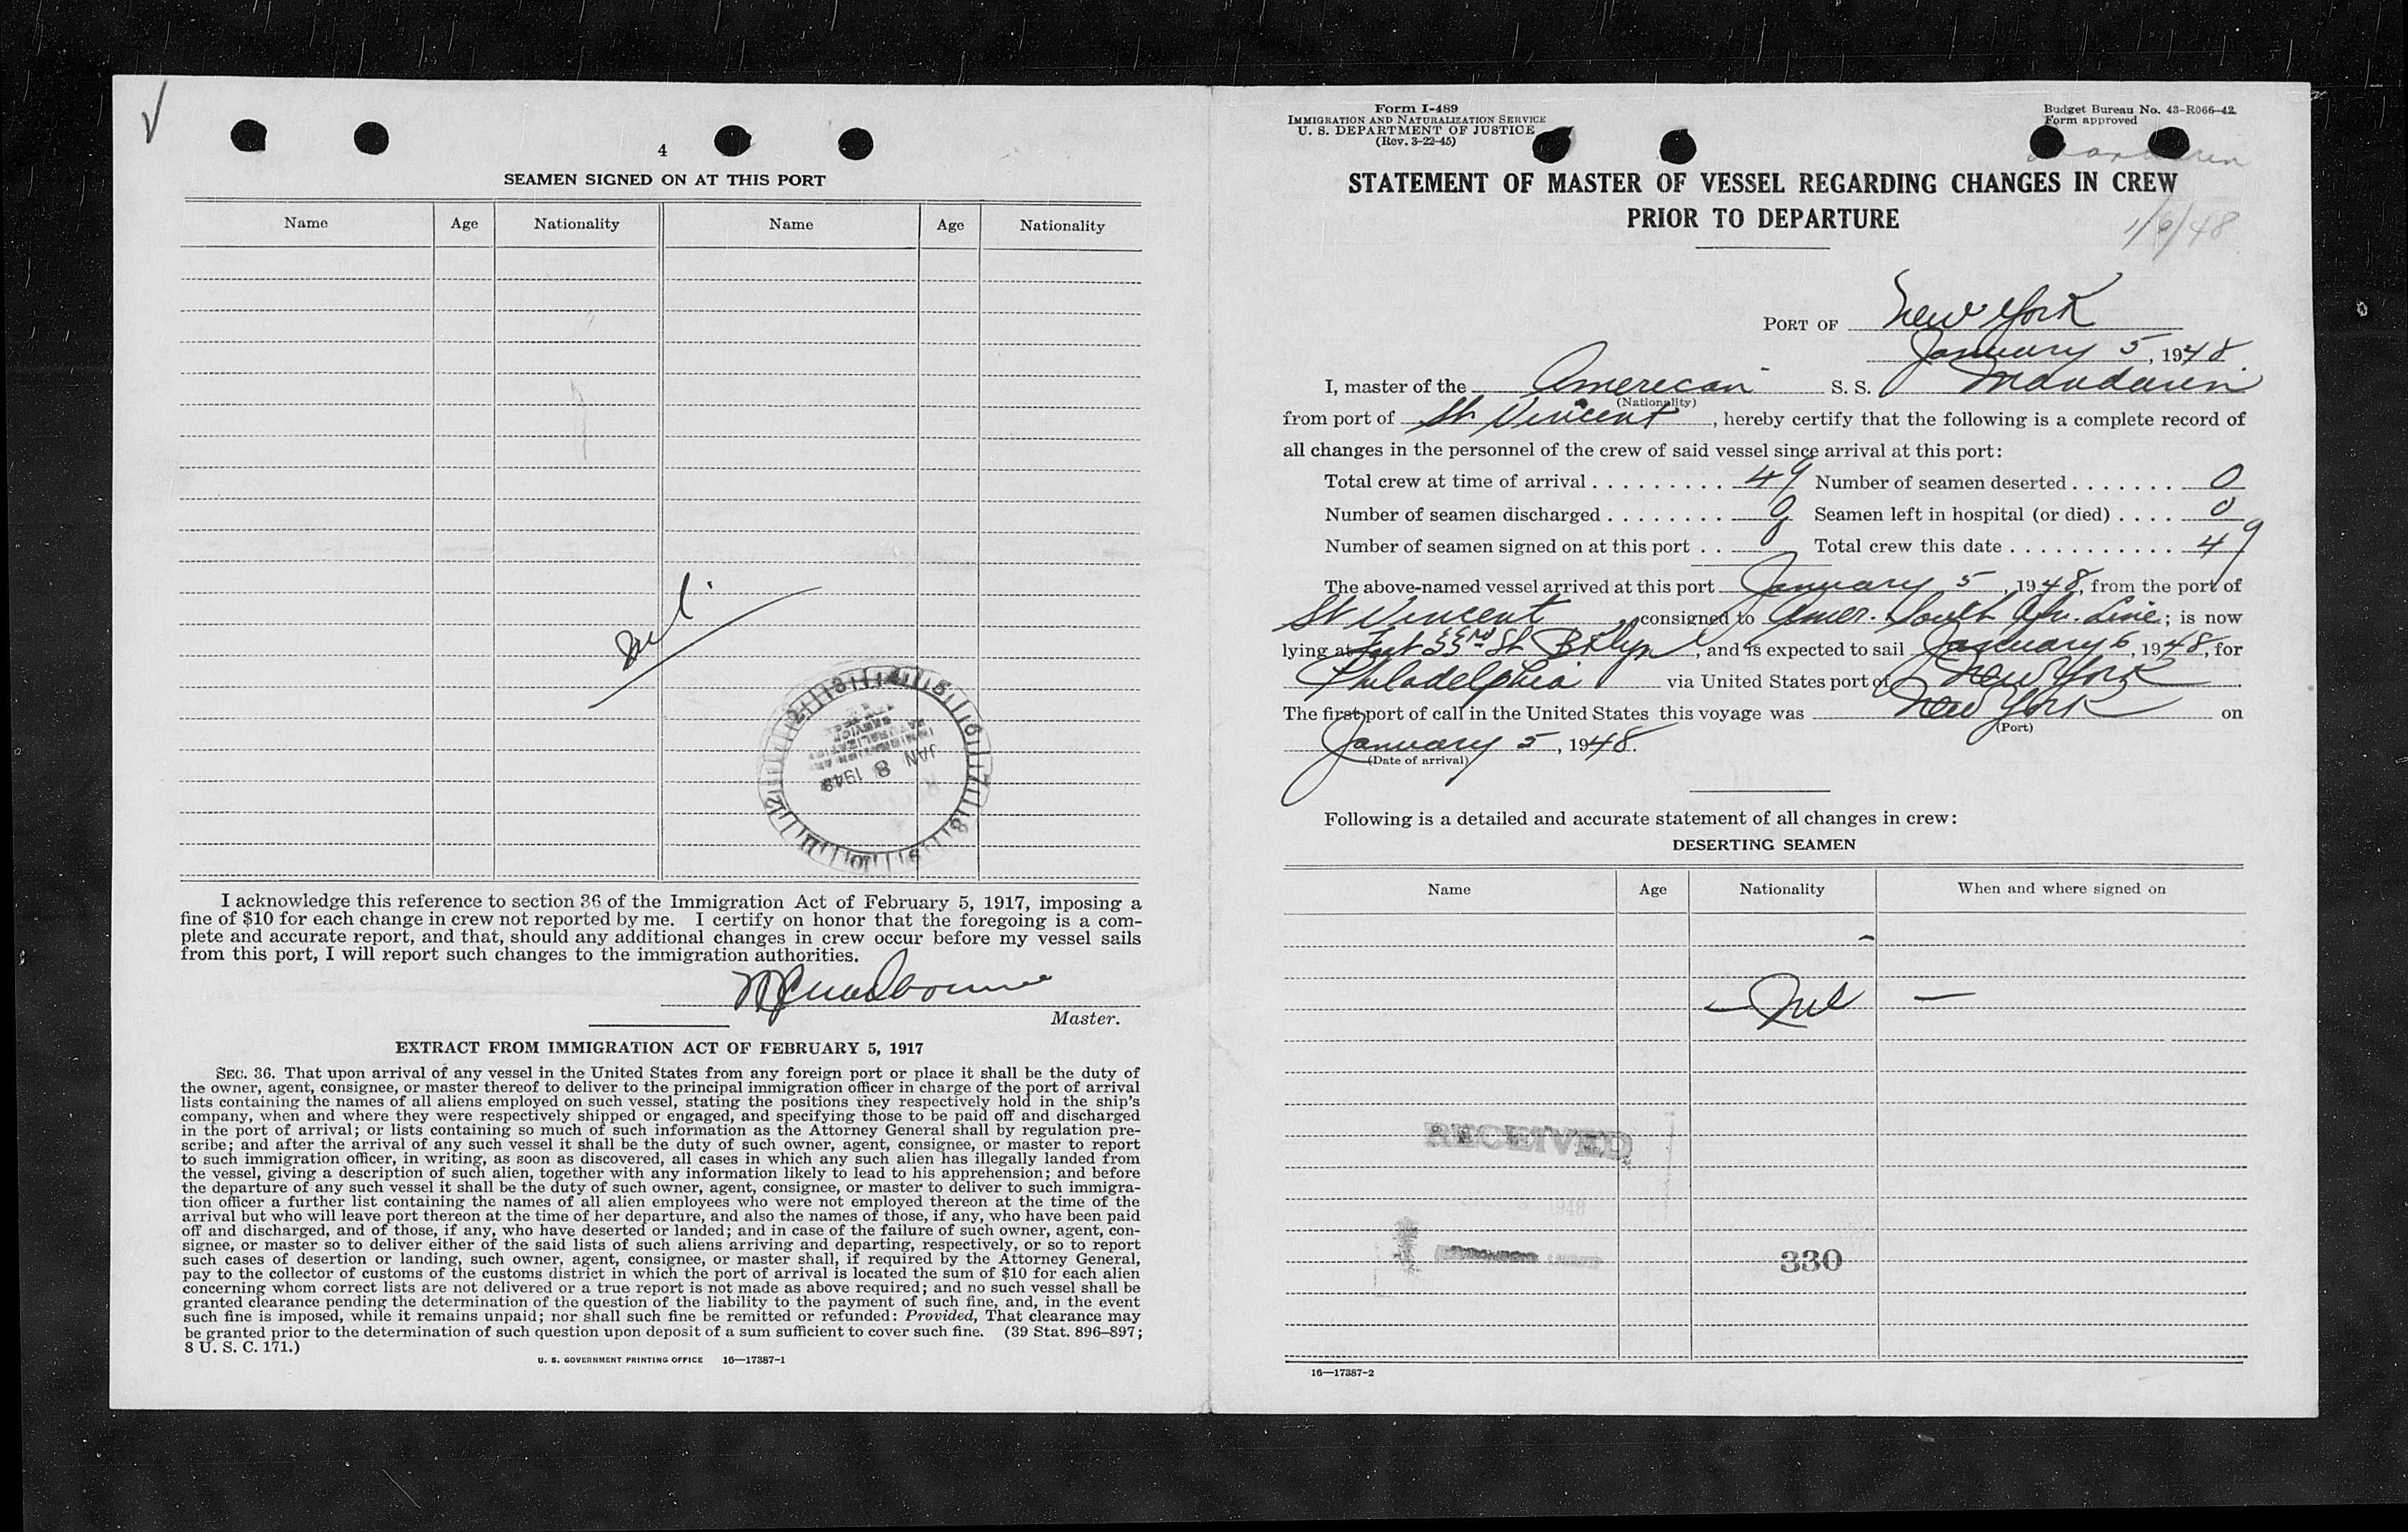 4
SEAMEN SIGNED ON AT THIS PORT
Name Age Nationality Name Age Nationality
JAN 8 1948
I acknowledge this reference to section 36 of the Immigration Act of February 5, 1917, imposing a
fine of $10 for each change in crew not reported by me. I certify on honor that the foregoing is a com-
plete and accurate report, and that, should any additional changes in crew occur before my vessel sails
from this port, I will report such changes to the immigration authorities.
Master.
EXTRACT FROM IMMIGRATION ACT OF FEBRUARY 5, 1917
SEC. 36. That upon arrival of any vessel in the United States from any foreign port or place it shall be the duty of
the owner, agent, consignee, or master thereof to deliver to the principal immigration officer in charge of the port of arrival
lists containing the names of all aliens employed on such vessel, stating the positions they respectively hold in the ship's
company, when and where they were respectively shipped or engaged, and specifying those to be paid off and discharged
in the port of arrival; or lists containing so much of such information as the Attorney General shall by regulation pre-
scribe; and after the arrival of any such vessel it shall be the duty of such owner, agent, consignee, or master to report
to such immigration officer, in writing, as soon as discovered, all cases in which any such alien has illegally landed from
the vessel, giving a description of such alien, together with any information likely to lead to his apprehension; and before
the departure of any such vessel it shall be the duty of such owner, agent, consignee, or master to deliver to such immigra-
tion officer a further list containing the names of all alien employees who were not employed thereon at the time of the
arrival but who will leave port thereon at the time of her departure, and also the names of those, if any, who have been paid
off and discharged, and of those, if any, who have deserted or landed; and in case of the failure of such owner, agent, con-
signee, or master so to deliver either of the said lists of such aliens arriving and departing, respectively, or so to report
such cases of desertion or landing, such owner, agent, consignee, or master shall, if required by the Attorney General,
pay to the collector of customs of the customs district in which the port of arrival is located the sum of $10 for each alien
concerning whom correct lists are not delivered or a true report is not made as above required; and no such vessel shall be
granted clearance pending the determination of the question of the liability to the payment of such fine, and, in the event
such fine is imposed, while it remains unpaid; nor shall such fine be remitted or refunded: Provided, That clearance may
be granted prior to the determination of such question upon deposit of a sum sufficient to cover such fine. (39 Stat. 896–897;
8 U. S. C. 171.)
U. S. GOVERNMENT PRINTING OFFICE 16—17387-1
Form I-489
IMMIGRATION AND NATURALIZATION SERVICE
U. S. DEPARTMENT OF JUSTICE
(Rev. 3-22-45)
Budget Bureau No. 43-R066-42.
Form approved
STATEMENT OF MASTER OF VESSEL REGARDING CHANGES IN CREW
PRIOR TO DEPARTURE
1/6/48
PORT OF New York
January 5, 1948
I, master of the American S. S. Mandarin
(Nationality)
from port of St Vincent, hereby certify that the following is a complete record of
all changes in the personnel of the crew of said vessel since arrival at this port:
Total crew at time of arrival . . . . . . . . . 49 Number of seamen deserted . . . . . . . 0
Number of seamen discharged . . . . . . . . 0 Seamen left in hospital (or died) . . . . 0
Number of seamen signed on at this port . . 0 Total crew this date . . . . . . . . . . . . 49
The above-named vessel arrived at this port January 5, 1948, from the port of
St Vincent, consigned to Amer. South Afr. Line; is now
lying at Foot 33rd St Bklyn, and is expected to sail January 6, 1948, for
Philadelphia via United States port of New York.
The first port of call in the United States this voyage was New York on
(Port)
January 5, 1948.
(Date of arrival)
Following is a detailed and accurate statement of all changes in crew:
DESERTING SEAMEN
Name Age Nationality When and where signed on
— Nil —
RECEIVED
1948
330
16—17387-2